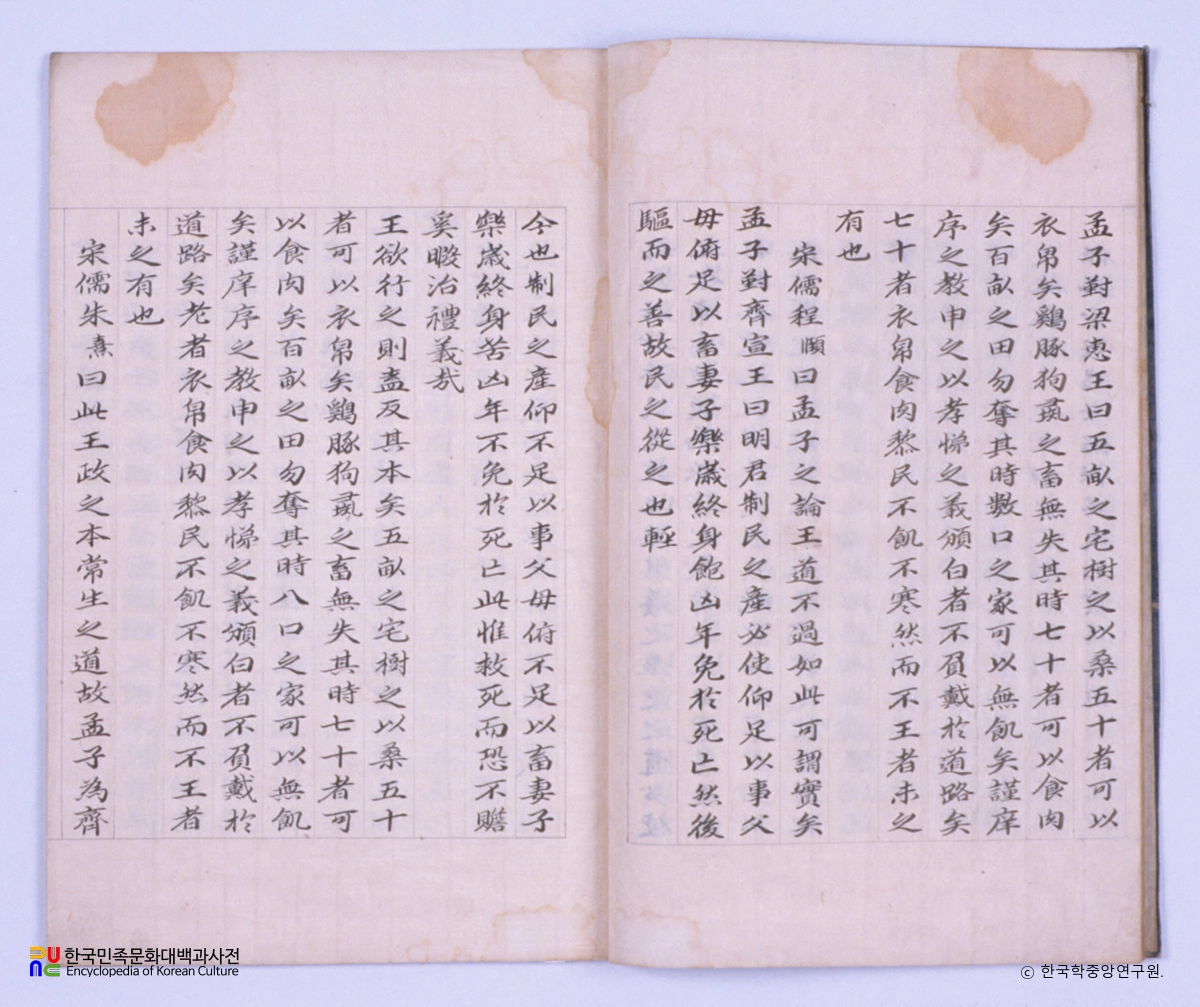 孟子對梁惠王曰五畝之宅樹之以桑五十者可以
衣帛矣鷄豚狗彘之畜無失其時七十者可以食肉
矣百畝之田勿奪其時數口之家可以無飢矣謹庠
序之教申之以孝悌之義頒白者不負戴於道路矣
七十者衣帛食肉黎民不飢不寒然而不王者未之
有也
宋儒程頤曰孟子之論王道不過如此可謂實矣
孟子對齊宣王曰明君制民之産必使仰足以事父
母俯足以畜妻子樂歲終身飽凶年免於死亡然後
驅而之善故民之從之也輕
今也制民之産仰不足以事父母俯不足以畜妻子
樂歲終身苦凶年不免於死亡此惟救死而恐不贍
奚暇治禮義哉
王欲行之則盍反其本矣五畝之宅樹之以桑五十
者可以衣帛矣鷄豚狗彘之畜無失其時七十者可
以食肉矣百畝之田勿奪其時八口之家可以無飢
矣謹庠序之教申之以孝悌之義頒白者不負戴於
道路矣老者衣帛食肉黎民不飢不寒然而不王者
未之有也
宋儒朱熹曰此王政之本常生之道故孟子為齊
한국민족문화대백과사전
Encyclopedia of Korean Culture
© 한국학중앙연구원.